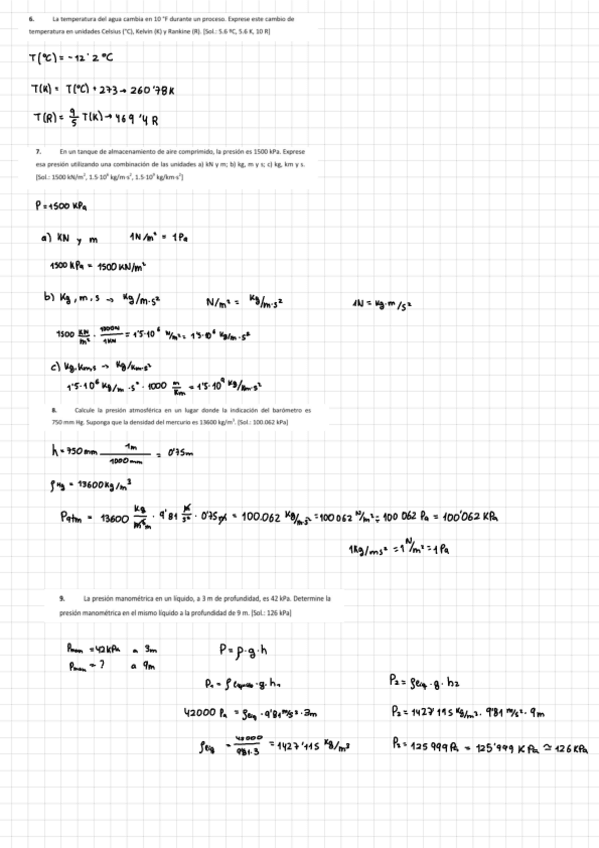 6. La temperatura del agua cambia en 10 °F durante un proceso. Exprese este cambio de
temperatura en unidades Celsius (°C), Kelvin (K) y Rankine (R). [Sol.: 5.6 °C, 5.6 K, 10 R]
T(°C) = -12'2 °C
T(K) = T(°C) + 273 → 260'78 K
T(R) = 9/5 T(K) → 469'4 R
7. En un tanque de almacenamiento de aire comprimido, la presión es 1500 kPa. Exprese
esa presión utilizando una combinación de las unidades a) kN y m; b) kg, m y s; c) kg, km y s.
[Sol.: 1500 kN/m², 1.5·10⁶ kg/m·s², 1.5·10⁹ kg/km·s²]
P = 1500 KPa
a) KN y m 1N/m² = 1Pa
1500 KPa = 1500 KN/m²
b) Kg, m, s → Kg/m·s² N/m² = Kg/m·s² 1N = Kg·m/s²
1500 KN/m² · 1000N/1KN = 1'5·10⁶ N/m² = 1'5·10⁶ Kg/m·s²
c) Kg, Km, s → Kg/Km·s²
1'5·10⁶ Kg/m·s² · 1000 m/Km = 1'5·10⁹ Kg/Km·s²
8. Calcule la presión atmosférica en un lugar donde la indicación del barómetro es
750 mm Hg. Suponga que la densidad del mercurio es 13600 kg/m³. [Sol.: 100.062 kPa]
h = 750 mm 1m/1000mm = 0'75m
ρHg = 13600 Kg/m³
Patm = 13600 Kg/m³ · 9'81 m/s² · 0'75 m = 100.062 Kg/m·s² = 100 062 N/m² = 100 062 Pa = 100'062 KPa
1Kg/ms² = 1 N/m² = 1 Pa
9. La presión manométrica en un líquido, a 3 m de profundidad, es 42 kPa. Determine la
presión manométrica en el mismo líquido a la profundidad de 9 m. [Sol.: 126 kPa]
Pman = 42 KPa a 3m P = ρ·g·h
Pman = ? a 9m
P₁ = ρ ·g·h₁ P₂ = ρliq · g · h₂
42000 Pa = ρliq · 9'81 m/s² · 3m P₂ = 1427'115 Kg/m³ · 9'81 m/s² · 9m
ρliq = 42000/9'81·3 = 1427'115 Kg/m³ P₂ = 125 999 Pa = 125'999 KPa ≃ 126 KPa